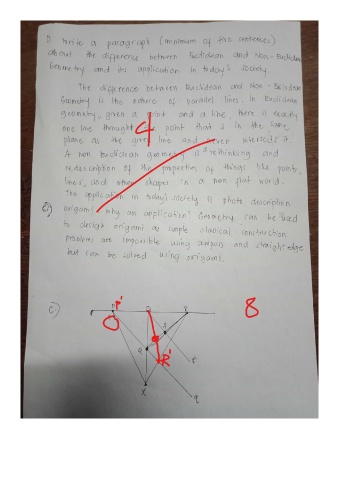 1. Write a paragraph (minimum of five sentences)
about the difference between Euclidean and Non-Euclidean
Geometry and its application in today's society.
The difference between Euclidean and Non-Euclidean
Geometry is the nature of parallel lines. In Euclidean
geometry, given a point and a line, there is exactly
one line through point that is in the same
plane as the given line and never intersects it.
A non Euclidean geometry is rethinking and
redescription of the properties of things like points,
lines, and other shapes in a non flat world.
The application in today's society is photo description
origami. Why an application? Geometry can be used
to design origami as simple classical construction
problems are impossible using compass and straightedge
but can be solved using origami.
4
C)
8
P'
R'
X